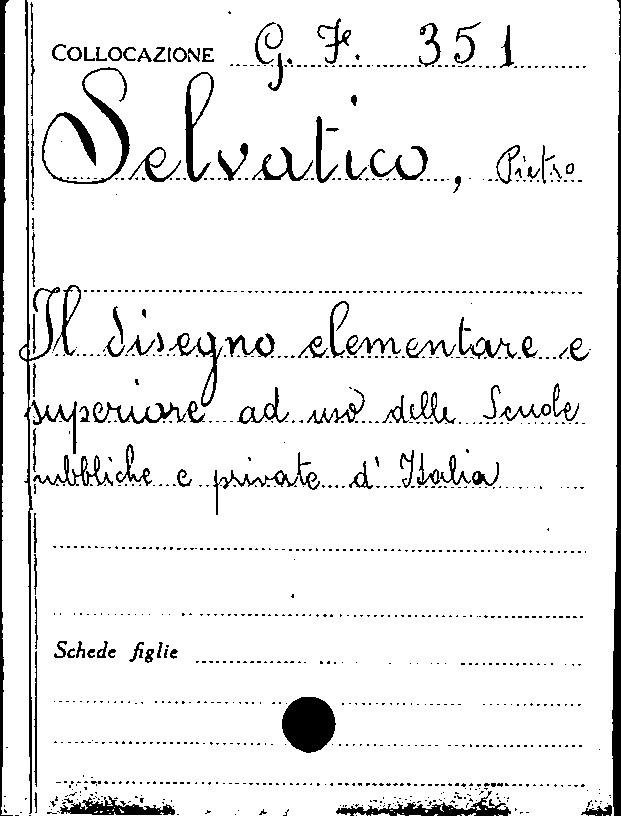 COLLOCAZIONE G. F. 351
Selvatico, Pietro
Il disegno elementare e
superiore ad uso delle Scuole
pubbliche e private d' Italia
Schede figlie